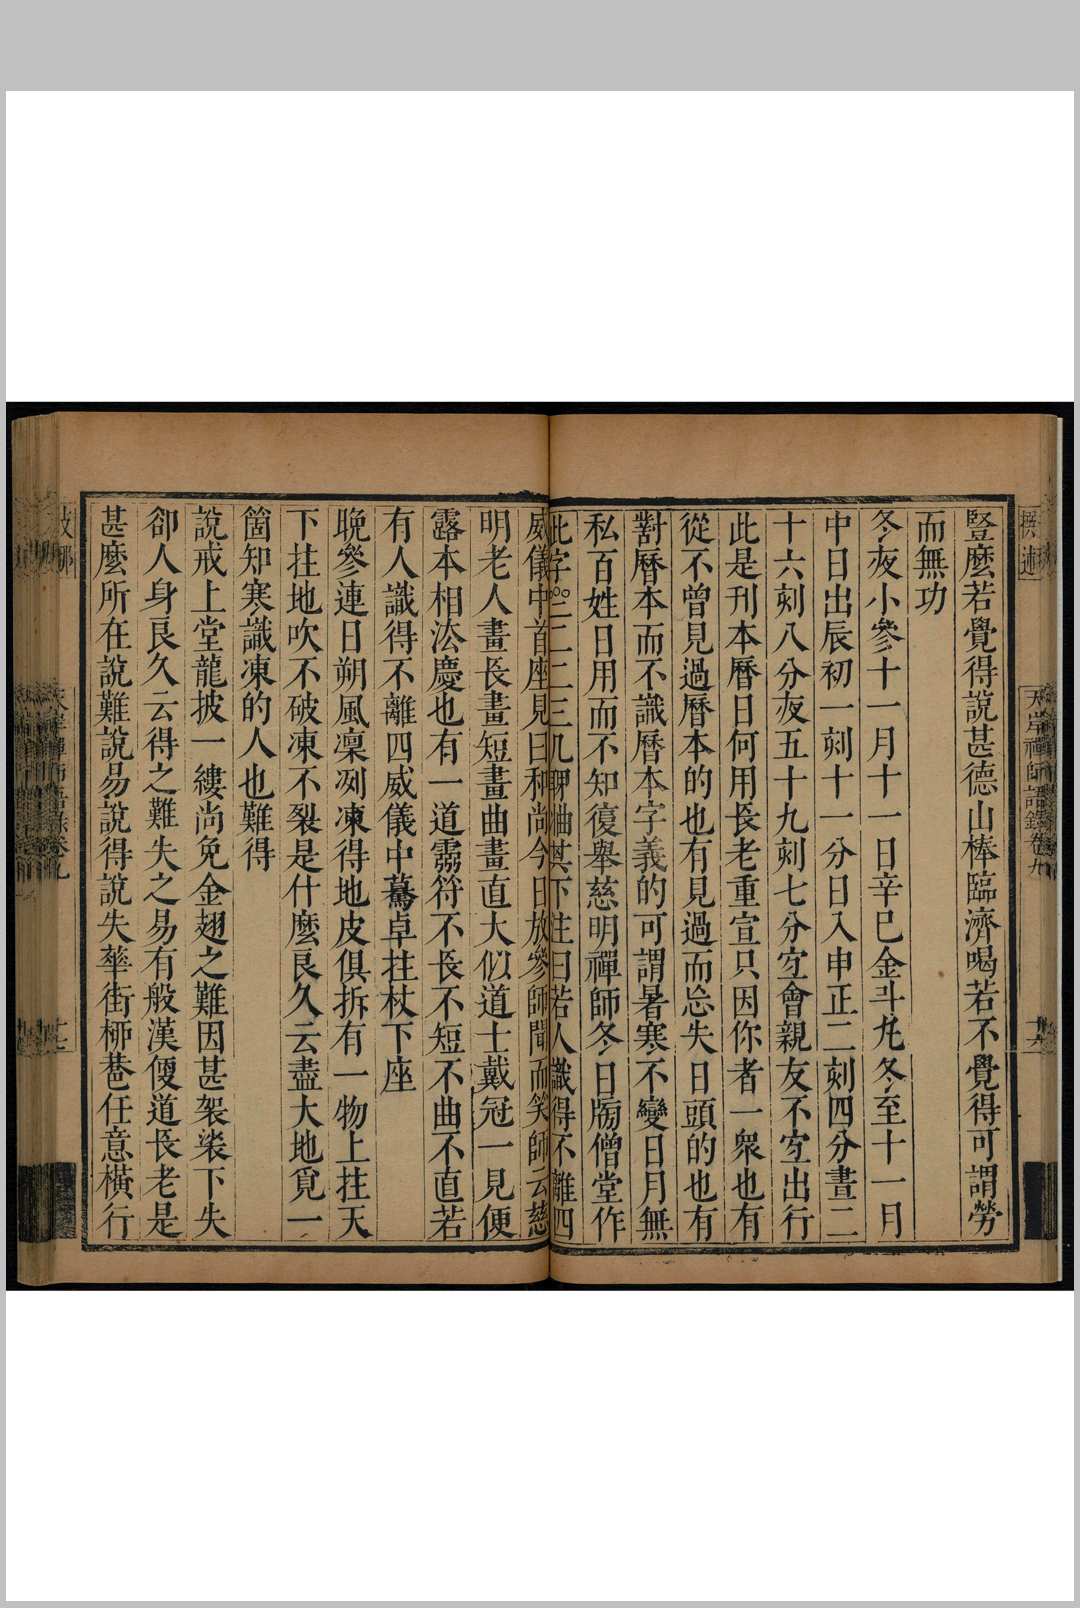 撰述
天岸禪師語錄卷九
十六
豎麼若覺得說甚德山棒臨濟喝若不覺得可謂勞
而無功
冬夜小參十一月十一日辛巳金斗九冬至十一月
中日出辰初一刻十一分日入申正二刻四分晝二
十六刻八分夜五十九刻七分宜會親友不宜出行
此是刊本曆日何用長老重宣只因你者一眾也有
從不曾見過曆本的也有見過而忘失日頭的也有
對曆本而不識曆本字義的可謂暑寒不變日月無
私百姓日用而不知復舉慈明禪師冬日牓僧堂作
此字 二二三 其下注曰若人識得不離四
威儀中首座見曰和尚今日放參師聞而笑師云慈
明老人畫長畫短畫曲畫直大似道士戴冠一見便
露本相法慶也有一道靈符不長不短不曲不直若
有人識得不離四威儀中驀卓拄杖下座
晚參連日朔風凜冽凍得地皮俱拆有一物上拄天
下拄地吹不破凍不裂是什麼良久云盡大地覓一
箇知寒識凍的人也難得
說戒上堂龍披一縷尚免金翅之難因甚袈裟下失
卻人身良久云得之難失之易有般漢便道長老是
甚麼所在說難說易說得說失華街柳巷任意橫行
天岸禪師語錄卷九
十七